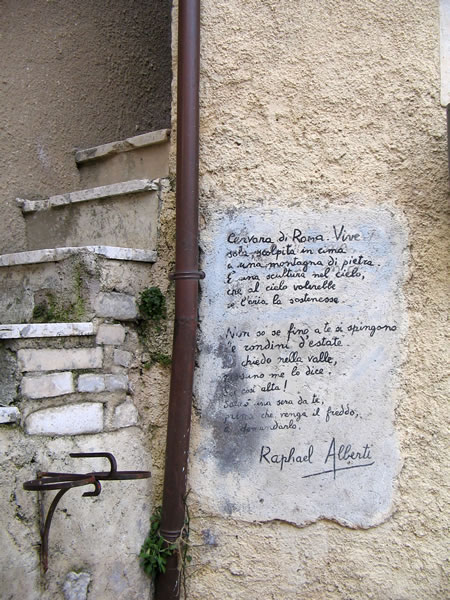 Cervara di Roma. Vive
sola, scolpita in cima
a una montagna di pietra.
È una scultura nel cielo,
che al cielo volerebbe
se l'aria la sostenesse.
Non so se fino a te si spingono
le rondini d'estate.
chiedo nella valle,
nessuno me lo dice.
Sei così alta!
Salirò una sera da te,
prima che venga il freddo,
domandarlo.
Raphael Alberti